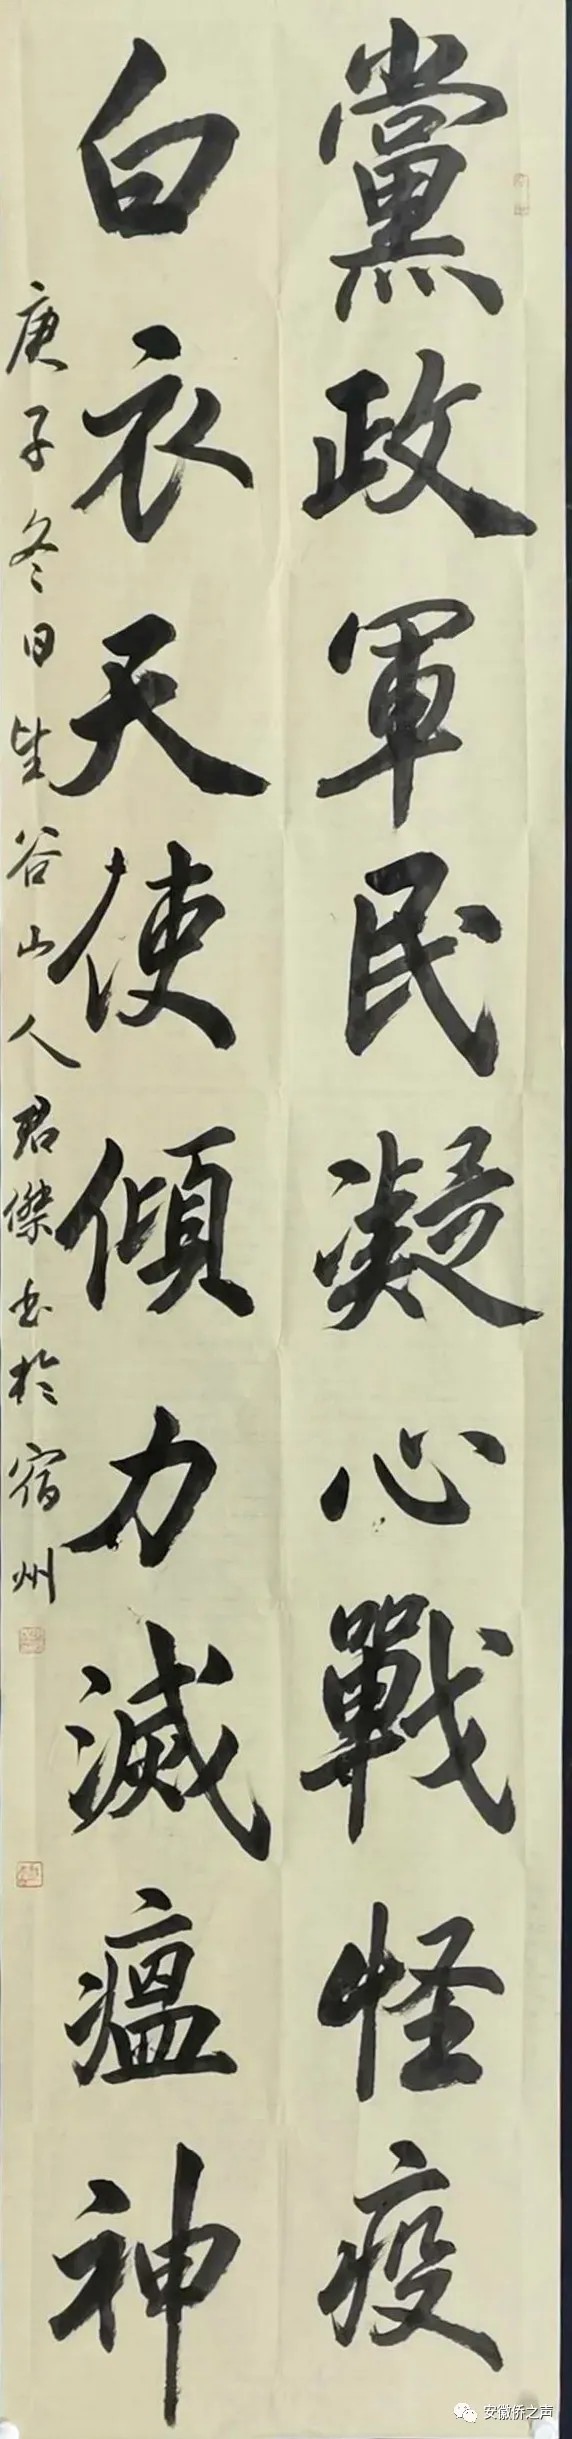 黨政軍民凝心戰怪疫
白衣天使傾力滅瘟神
庚子冬日𡉄谷山人君傑书於宿州
安徽侨之声